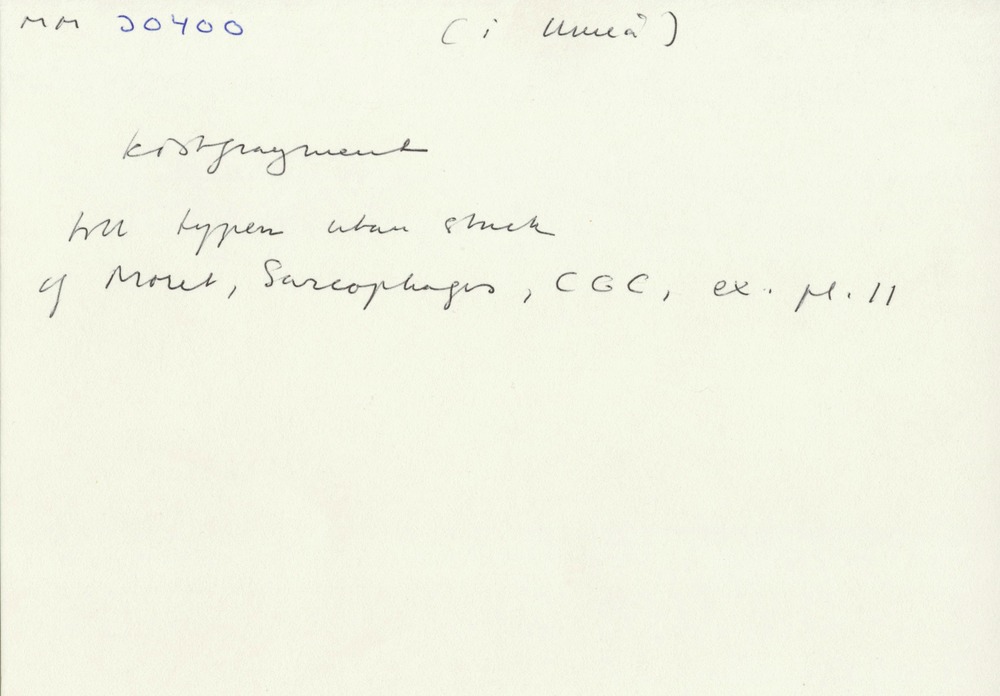 MM 30400 (i Umeå)
kistfragment
till typen utan stuck
cf Moret, Sarcophages, CGC, ex. pl. 11